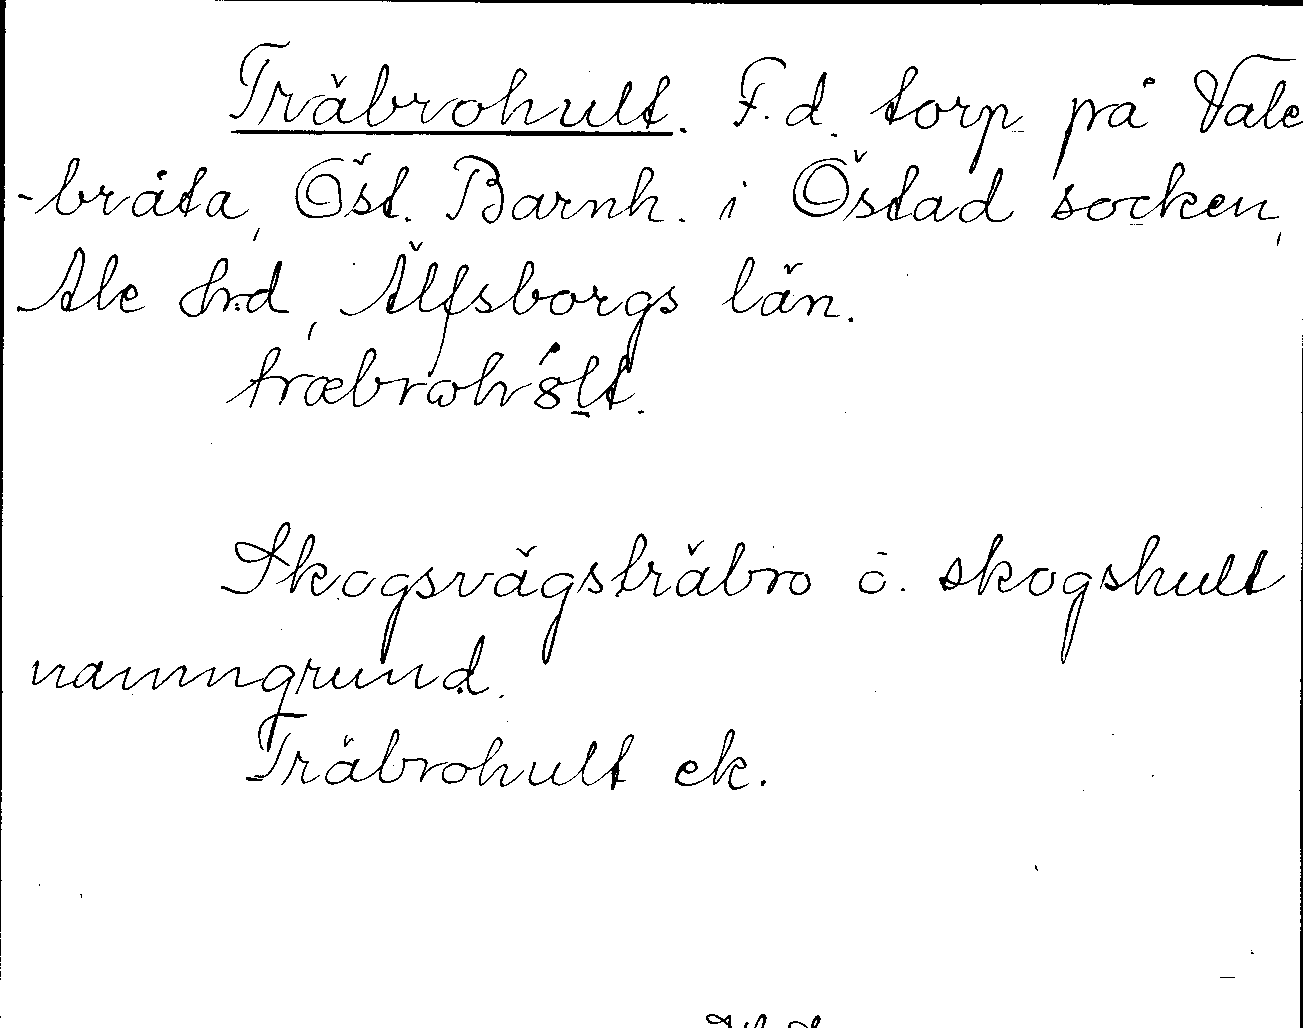 Träbrohult. F.d. torp på Vale
-bråta, Öst. Barnh. i Östad socken,
Ale hrd, Älfsborgs län.
Skogsvägsträbro o. skogshult
namngrund.
Träbrohult ek.